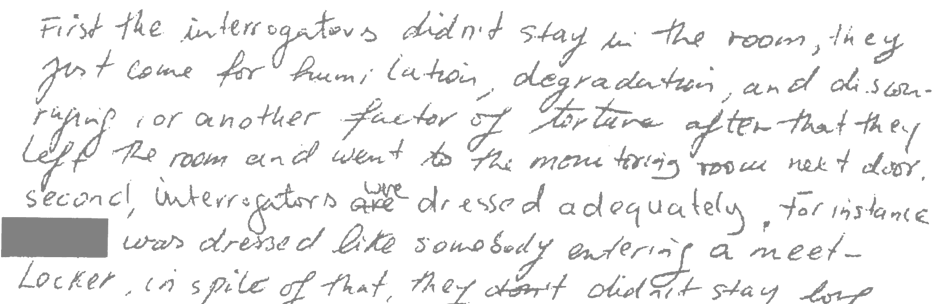 First the interrogators didn't stay in the room, they
just come for humilation, degradation, and discou-
raging, or another factor of torture after that they
left the room and went to the monitoring room next door.
second, interrogators were dressed adequately, For instance
was dressed like somebody entering a meet-
Locker, in spite of that, they didn't stay long